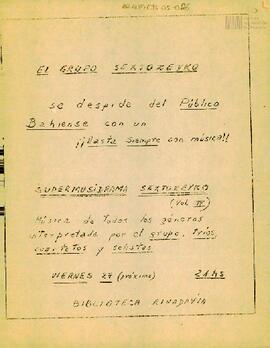 EL GRUPO SEXTOZEYRO
se despide del Público
Bahiense con un
¡¡Hasta siempre con música!!
SUPERMUSIDRAMA SEXTOZEYRO
(Vol. II)
Música de todos los géneros
interpretada por el grupo, tríos,
cuartetos y solistas
VIERNES 27 (próximo) 21 hs
BIBLIOTECA RIVADAVIA